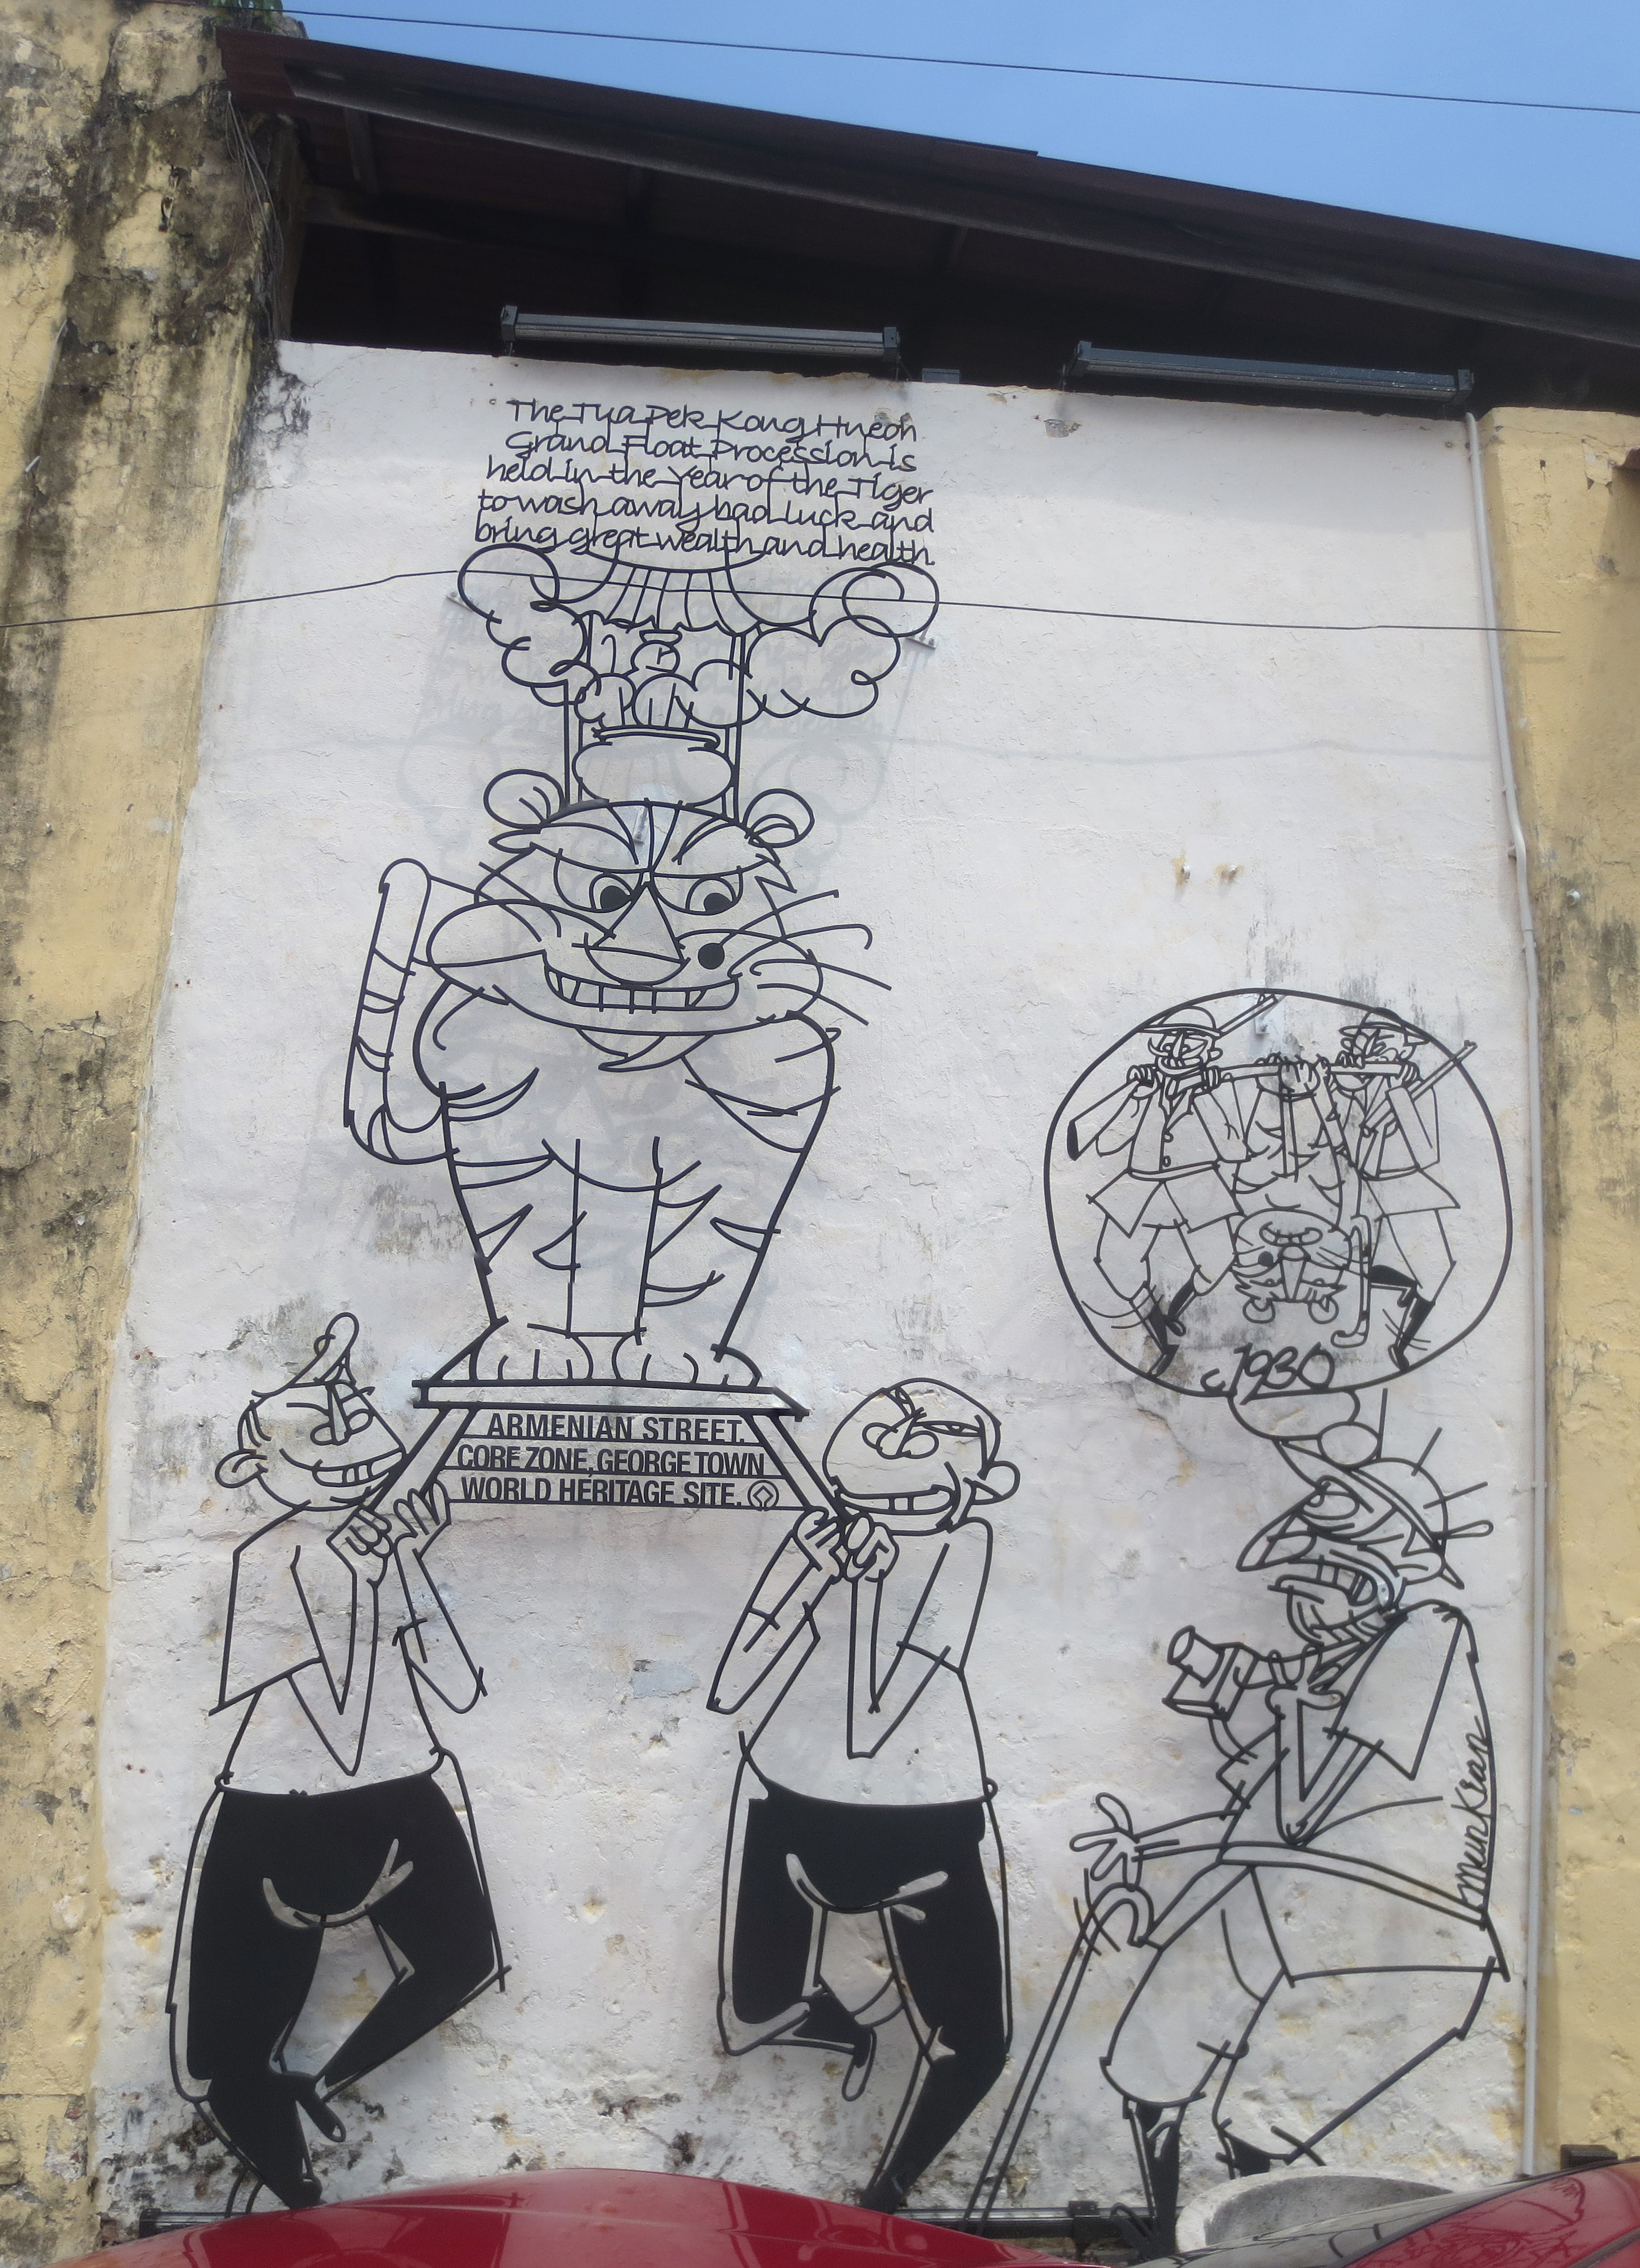 The Tua Pek Kong Hneoh
Grand Float Procession is
held in the Year of the Tiger
to wash away bad luck and
bring great wealth and health.
ARMENIAN STREET.
CORE ZONE, GEORGE TOWN
WORLD HERITAGE SITE.
c.1930
munkian